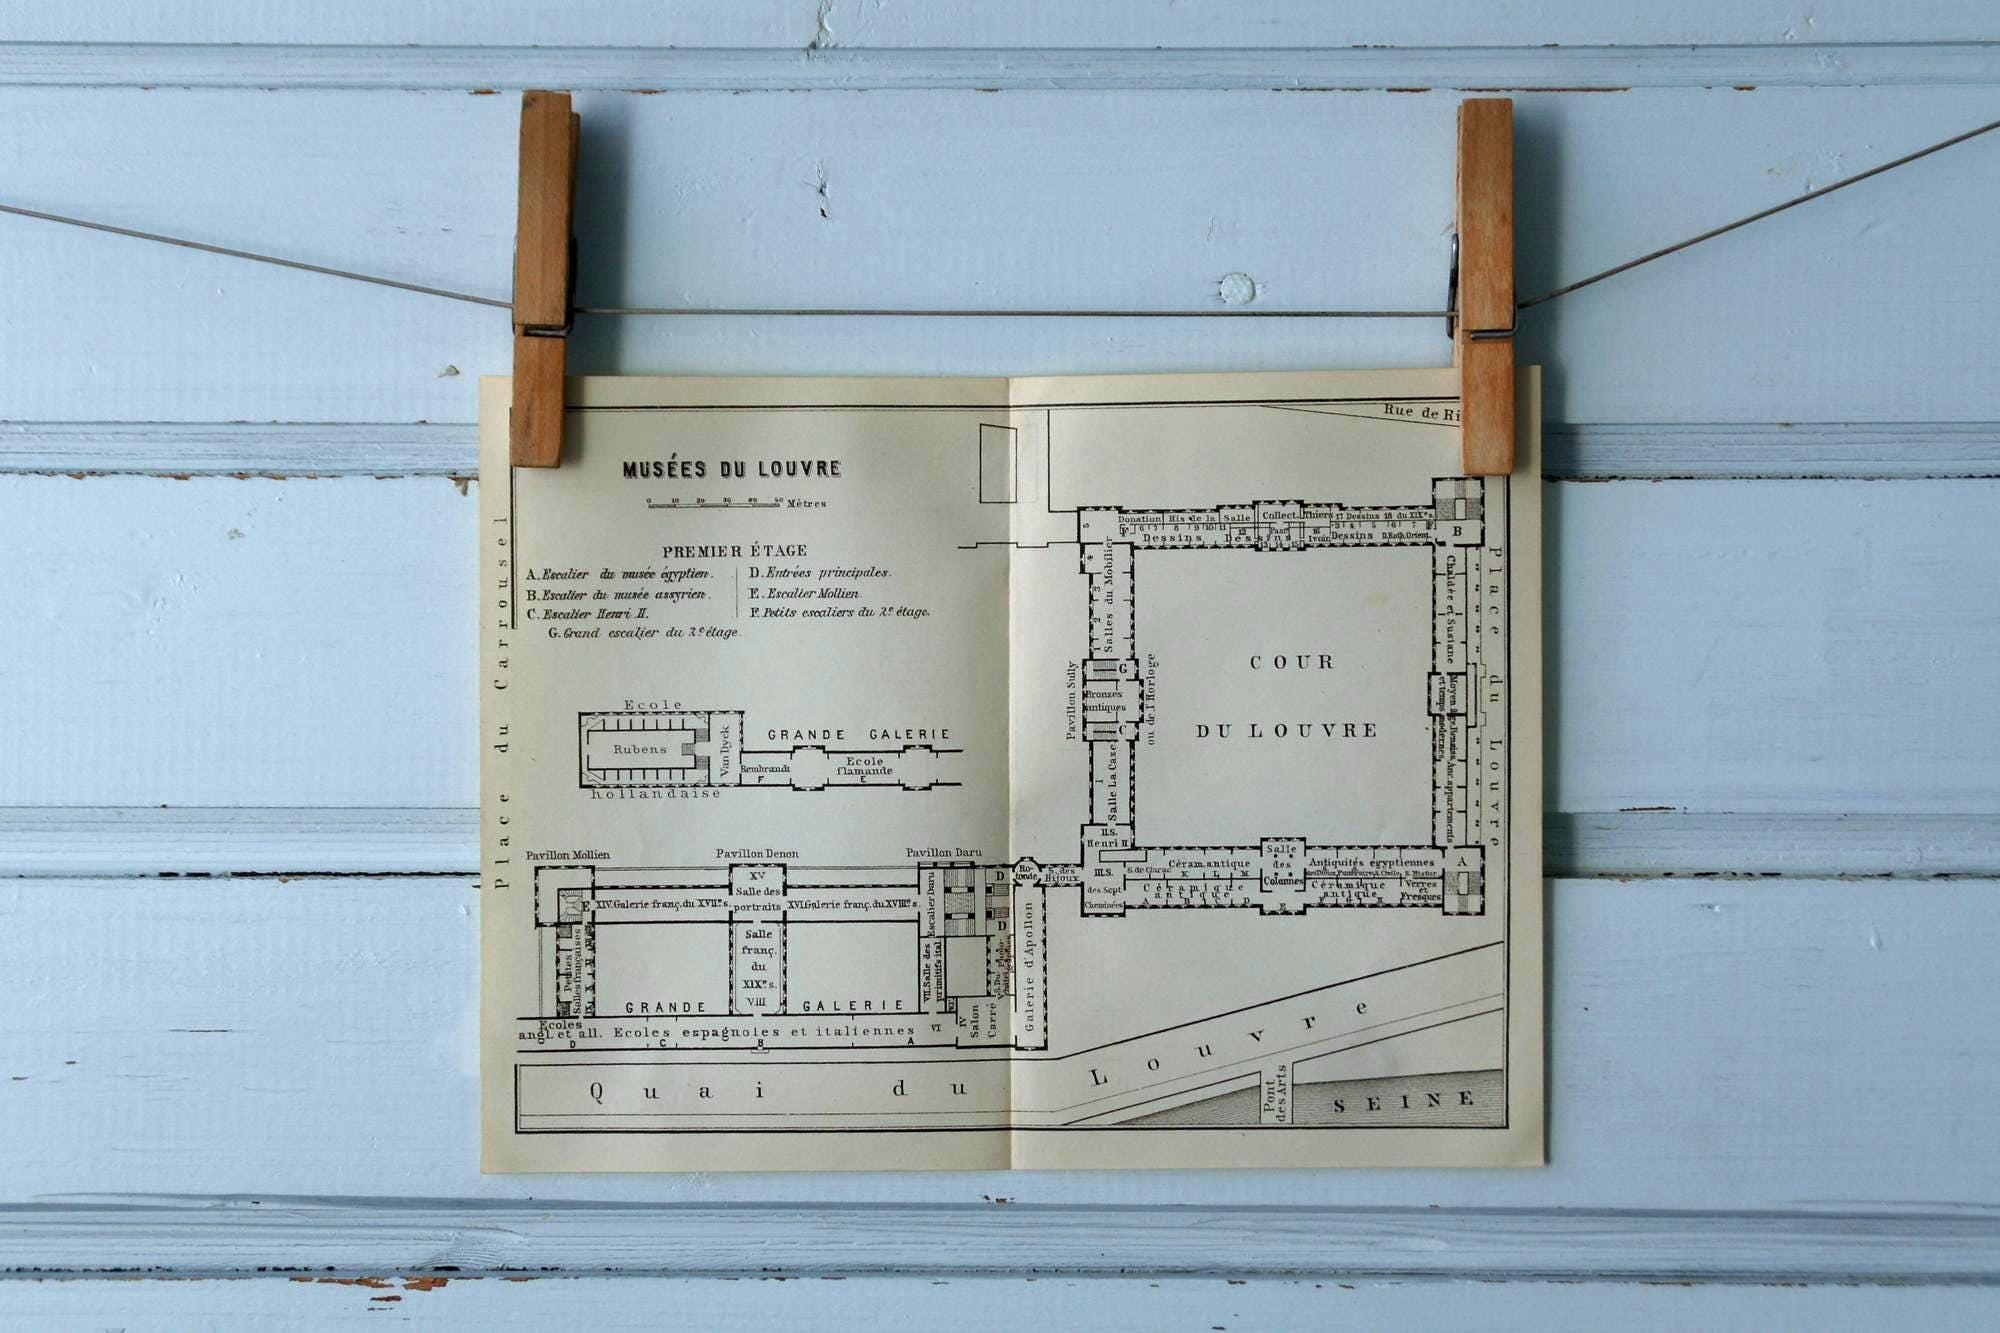 Rue de Ri
MUSÉES DU LOUVRE
0 10 20 30 40 50 Mètres
PREMIER ÉTAGE
A. Escalier du musée égyptien.
B. Escalier du musée assyrien.
C. Escalier Henri II.
D. Entrées principales.
E. Escalier Mollien.
F. Petits escaliers du 2e étage.
G. Grand escalier du 2e étage.
Place du Carrousel
Ecole
Rubens
Van Dyck
hollandaise
GRANDE GALERIE
Rembrandt
F
Ecole
flamande
E
Donation
His de la
Salle
Collect.
Thiers
17 Dessins 18 du XIXe s.
F 6 7 8 9 10 11
12
3 4 5 6 7
Dessins
Dessins
13 14 15
16
Ivoir
Dessins
D.Roth.Orient.
B
5
4
3
2
1
Salles du Mobilier
G
Pavillon Sully
Bronzes
antiques
ou de l'Horloge
C
I
Salle La Caze
II.S.
Henri II
III.S.
des Sept
Cheminées
COUR
DU LOUVRE
Chaldée et Susiane
Moyen âge, Renaiss.
et temps modernes
Anc. appartements
Place du Louvre
S. de Clarac
Céram. antique
K L M
Céramique
antique
A B C D
Salle
des
Colonnes
E
Antiquités égyptiennes
S. Civile
S. Histor.
Céramique
antique
Verres
et
Fresques
A
Pavillon Mollien
Pavillon Denon
Pavillon Daru
E
XIV. Galerie franç. du XVIIe s.
XV
Salle des
portraits
XVI. Galerie franç. du XVIIIe s.
Escalier Daru
D
D
Rotonde
S. des
Bijoux
Petites
Salles françaises
Salle
franç.
du
XIXe s.
VIII
VII. Salle des
primitifs ital.
IV
Salon
Carré
Galerie d'Apollon
GRANDE GALERIE
Ecoles
angl. et all. Ecoles espagnoles et italiennes
VI
D C B A
Quai du Louvre
Pont
des Arts
SEINE